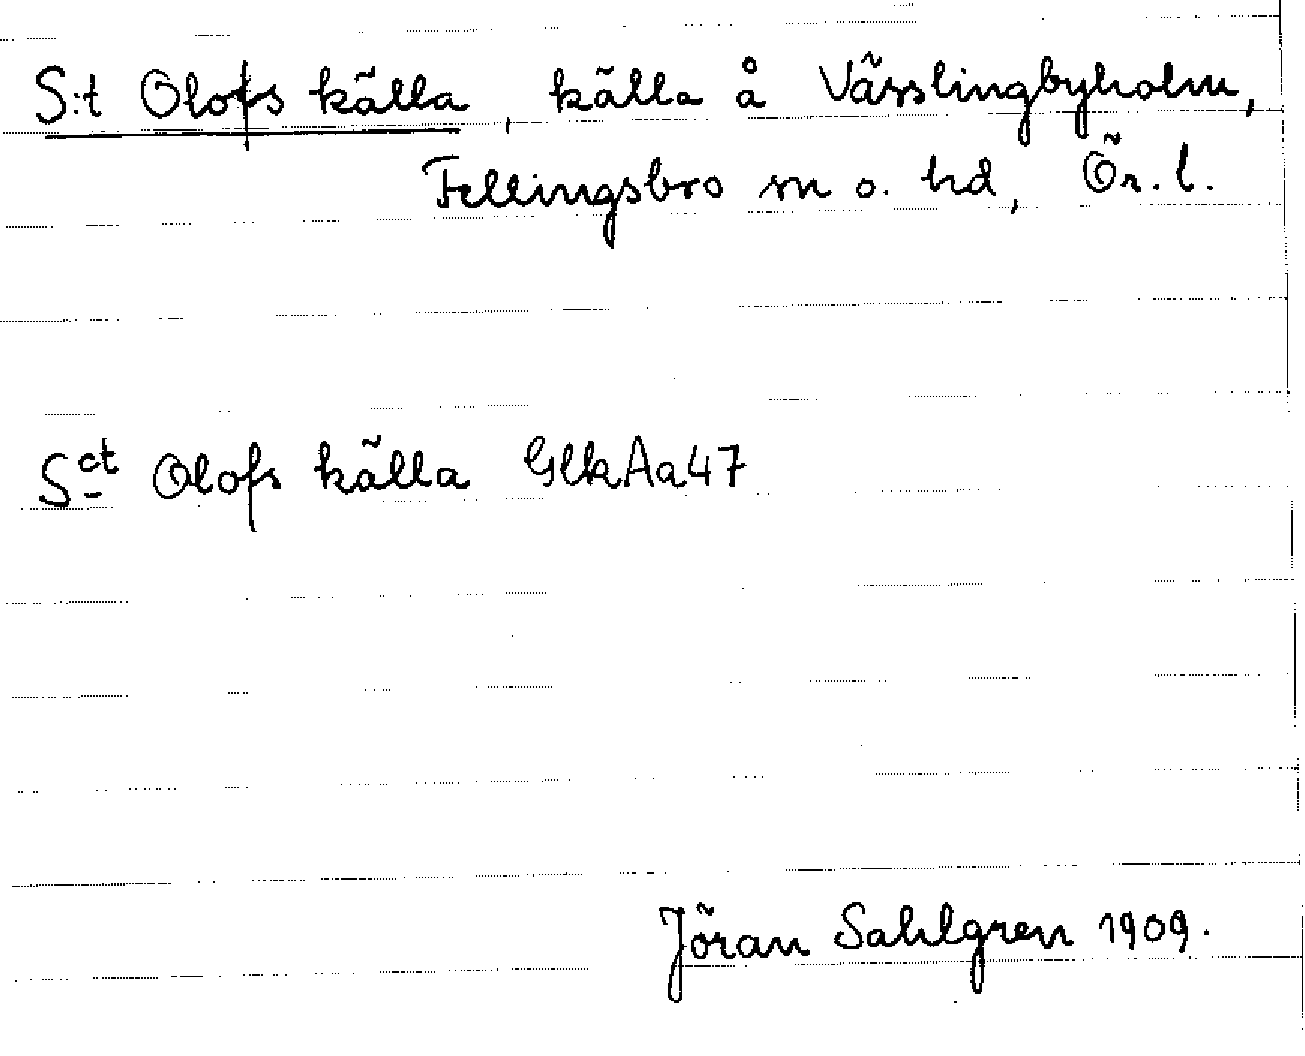 S:t Olofs källa, källa å Västlingbyholm,
Fellingsbro sn o. hd, Ör. l.
Sct Olofs källa GlkAa47
Jöran Sahlgren 1909.